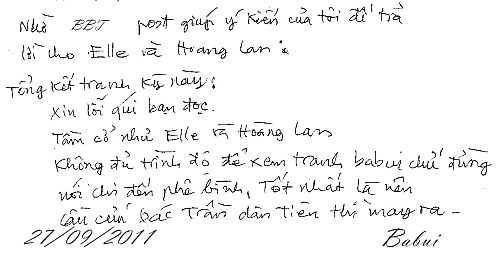 Nhờ BBT post giúp ý kiến của tôi để trả
lời cho Elle và Hoang Lan :
Tổng kết tranh kỳ này :
Xin lỗi quí bạn đọc.
Tầm cỡ như Elle và Hoàng Lan
Không đủ trình độ để xem tranh babui chứ đừng
nói chi đến phê bình, Tốt nhất là nên
cầu cứu bác Trần dân Tiên thì may ra -
27/09/2011 Babui